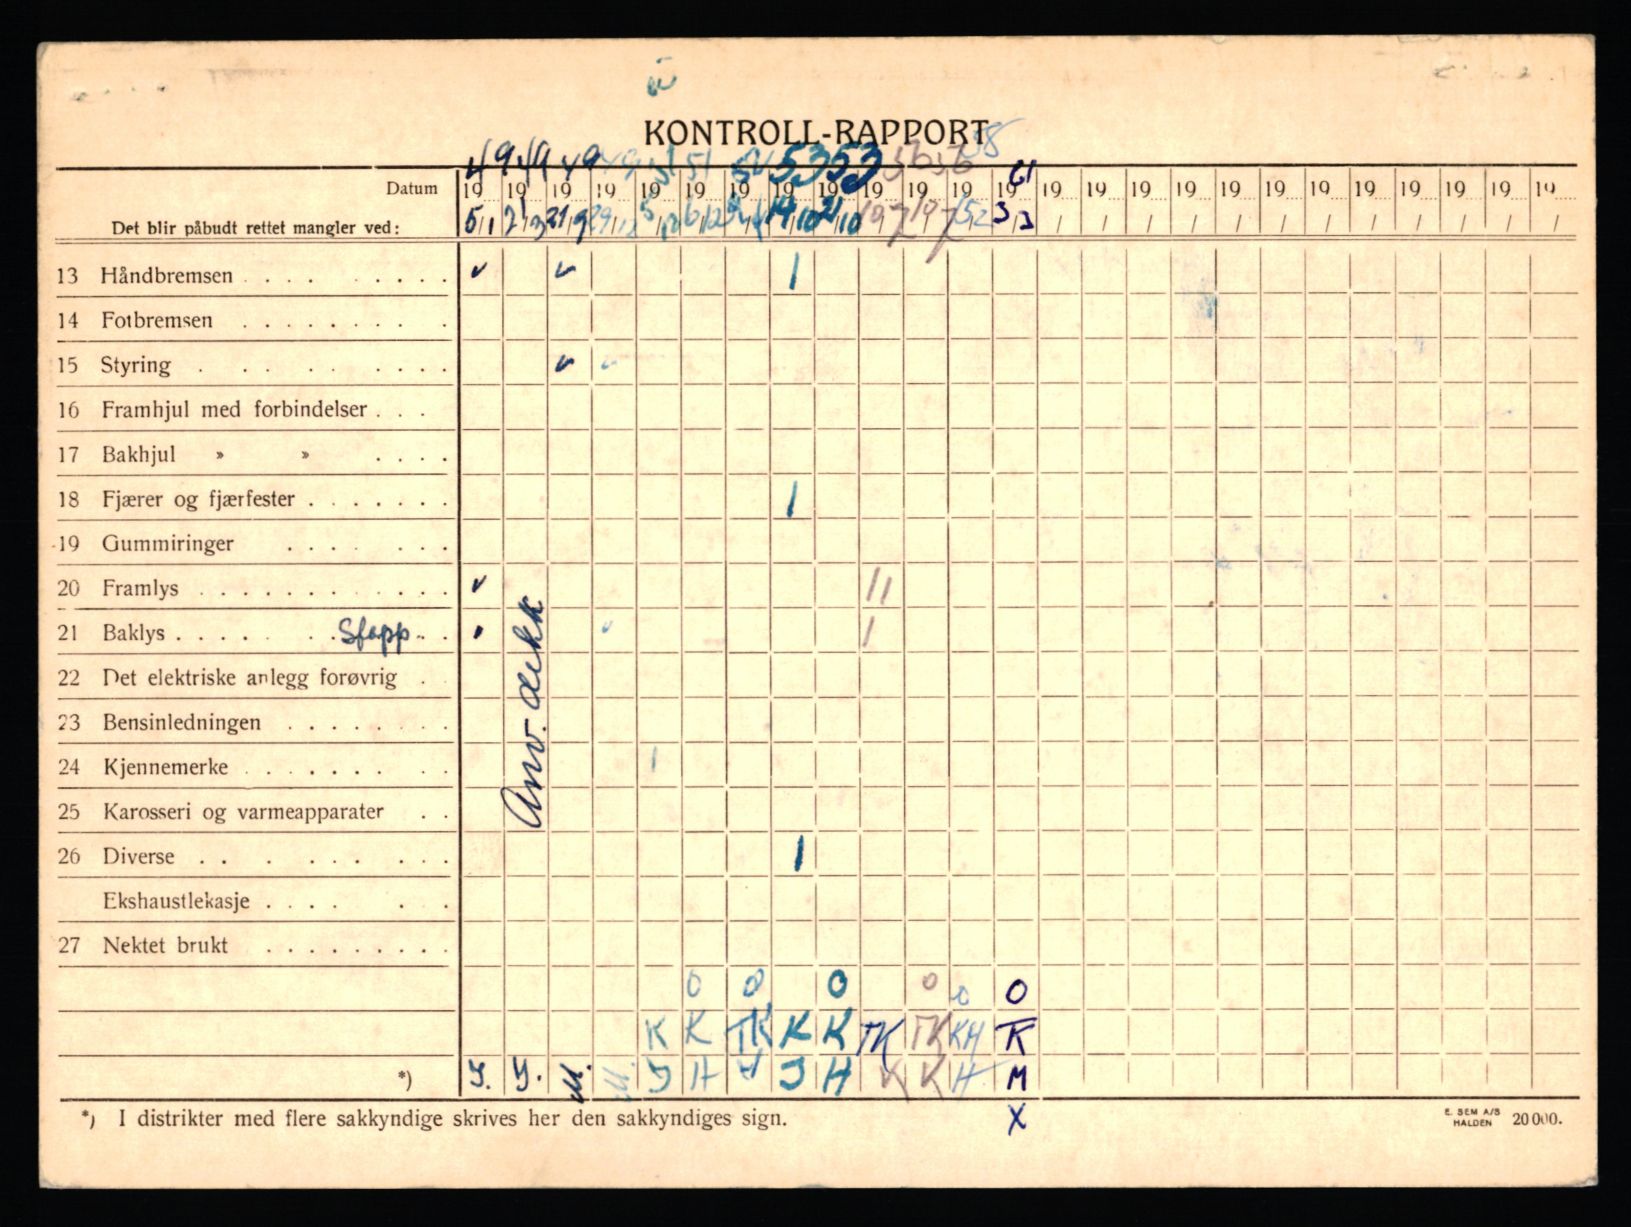 KONTROLL-RAPPORT
49 49 49 49 51 51 52 53 53 56 56 58 61
Datum 19 19 19 19 19 19 19 19 19 19 19 19 19 19 19 19 19 19 19 19 19 19 19 19 19
Det blir påbudt rettet mangler ved: 5/1 2/3 21/9 29/12 5/12 6/12 14/10 21/10 10/7 19/7 15/2 3/3 / / / / / / / / / / / /
13 Håndbremsen . . . . . . . . . ✓ ✓ 1
14 Fotbremsen . . . . . . . . .
15 Styring . . . . . . . . . ✓ ✓
16 Framhjul med forbindelser . . .
17 Bakhjul » » . . . .
18 Fjærer og fjærfester . . . . . . . 1
19 Gummiringer . . . . . . .
20 Framlys . . . . . . . . . . . . ✓ 11
21 Baklys . . . . . . . Stopp . . ✓ 1
22 Det elektriske anlegg forøvrig .
23 Bensinledningen . . . . . . . .
24 Kjennemerke . . . . . . . . . 1
25 Karosseri og varmeapparater . .
26 Diverse . . . . . . . . . 1
Ekshaustlekasje . . . . . . .
27 Nektet brukt . . . . . . . . .
Anv. dekk
O O O O O O
K K TK K K TK TK KH K
*) J. J. M. M. J H H J H K K H M
*) I distrikter med flere sakkyndige skrives her den sakkyndiges sign.
X
E. SEM A/S
HALDEN 20 000.